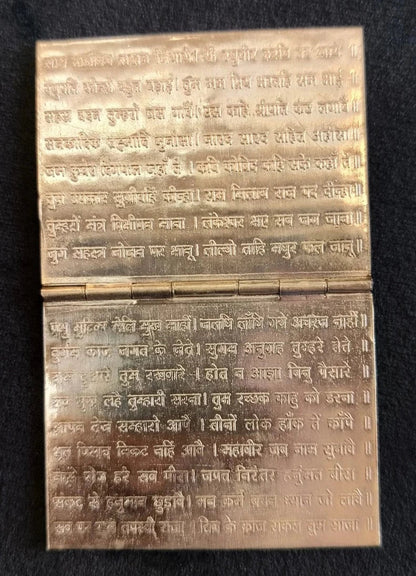 लाय सजीवन लखन जियाये। श्री रघुबीर हरषि उर लाये॥
रघुपति कीन्ही बहुत बड़ाई। तुम मम प्रिय भरतहि सम भाई॥
सहस बदन तुम्हरो जस गावैं। अस कहि श्रीपति कंठ लगावैं॥
सनकादिक ब्रह्मादि मुनीसा। नारद सारद सहित अहीसा॥
जम कुबेर दिगपाल जहाँ ते। कवि कोबिद कहि सके कहाँ ते॥
तुम उपकार सुग्रीवहिं कीन्हा। राम मिलाय राज पद दीन्हा॥
तुम्हरो मंत्र विभीषन माना। लंकेश्वर भए सब जग जाना॥
जुग सहस्त्र जोजन पर भानू। लील्यो ताहि मधुर फल जानू॥
प्रभु मुद्रिका मेलि मुख माहीं। जलधि लाँघि गये अचरज नाहीं॥
दुर्गम काज जगत के जेते। सुगम अनुग्रह तुम्हरे तेते॥
राम दुआरे तुम रखवारे। होत न आज्ञा बिनु पैसारे॥
सब सुख लहे तुम्हारी सरना। तुम रच्छक काहु को डरना॥
आपन तेज सम्हारो आपै। तीनों लोक हाँक तें काँपै॥
भूत पिसाच निकट नहिं आवै। महाबीर जब नाम सुनावै॥
नासे रोग हरे सब पीरा। जपत निरंतर हनुमत बीरा॥
संकट से हनुमान छुड़ावै। मन क्रम बचन ध्यान जो लावै॥
सब पर राम तपस्वी राजा। तिन के काज सकल तुम साजा॥